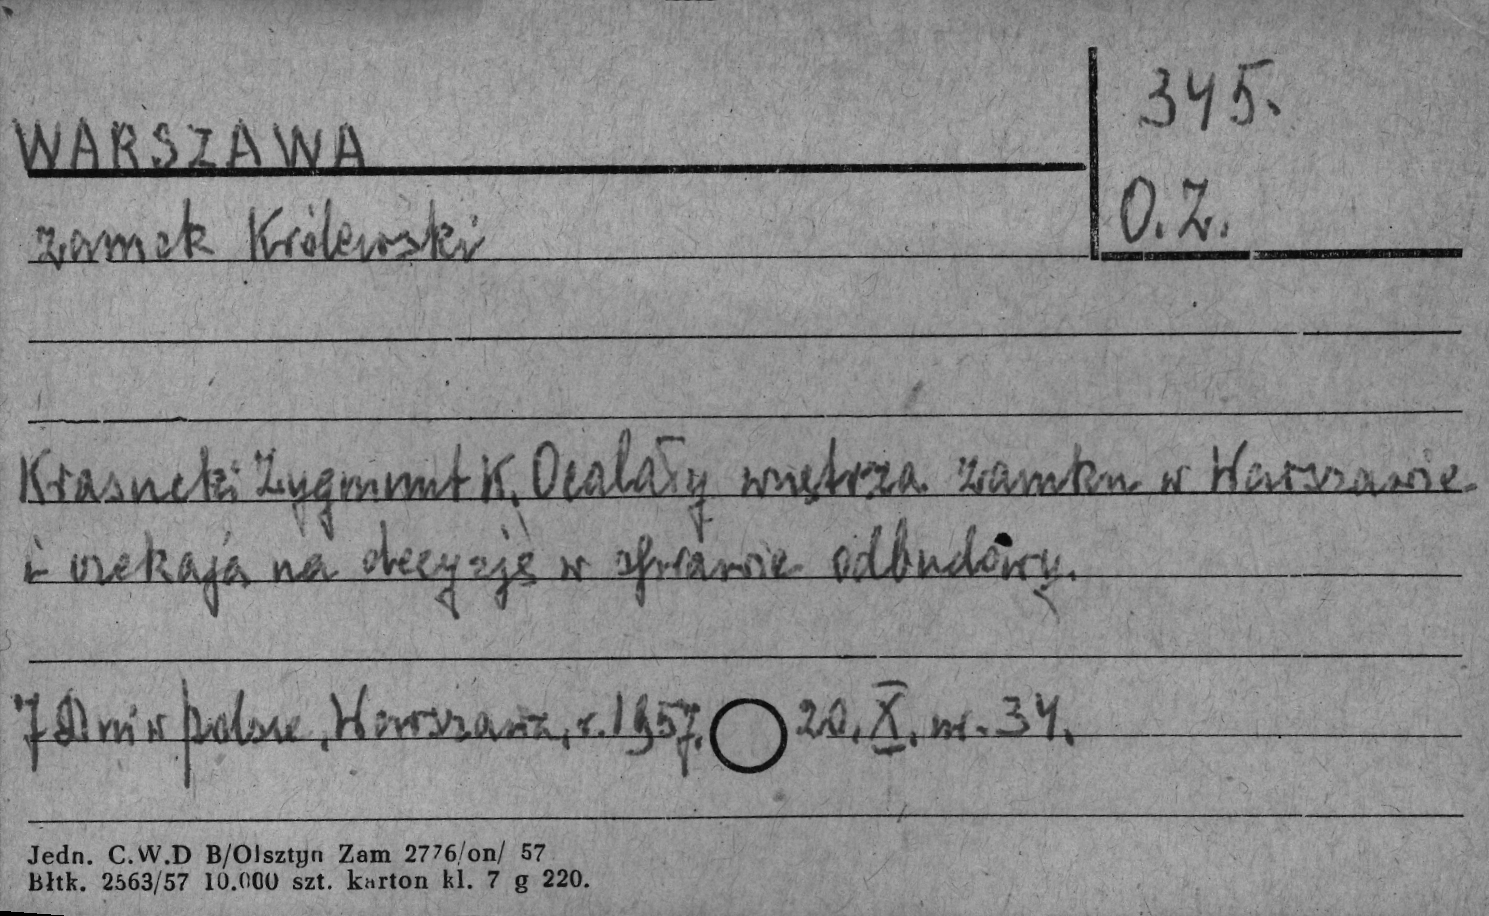 345.
WARSZAWA
O.Z.
zamek Królewski
Krasucki Zygmunt K. Ocalały wnętrza zamku w Warszawie
i czekają na decyzję w sprawie odbudowy.
7 Dni w Polsce, Warszawa, r. 1957. 20. X. nr. 34.
Jedn. C.W.D B/Olsztyn Zam 2776/on/ 57
Błtk. 2563/57 10.000 szt. karton kl. 7 g 220.